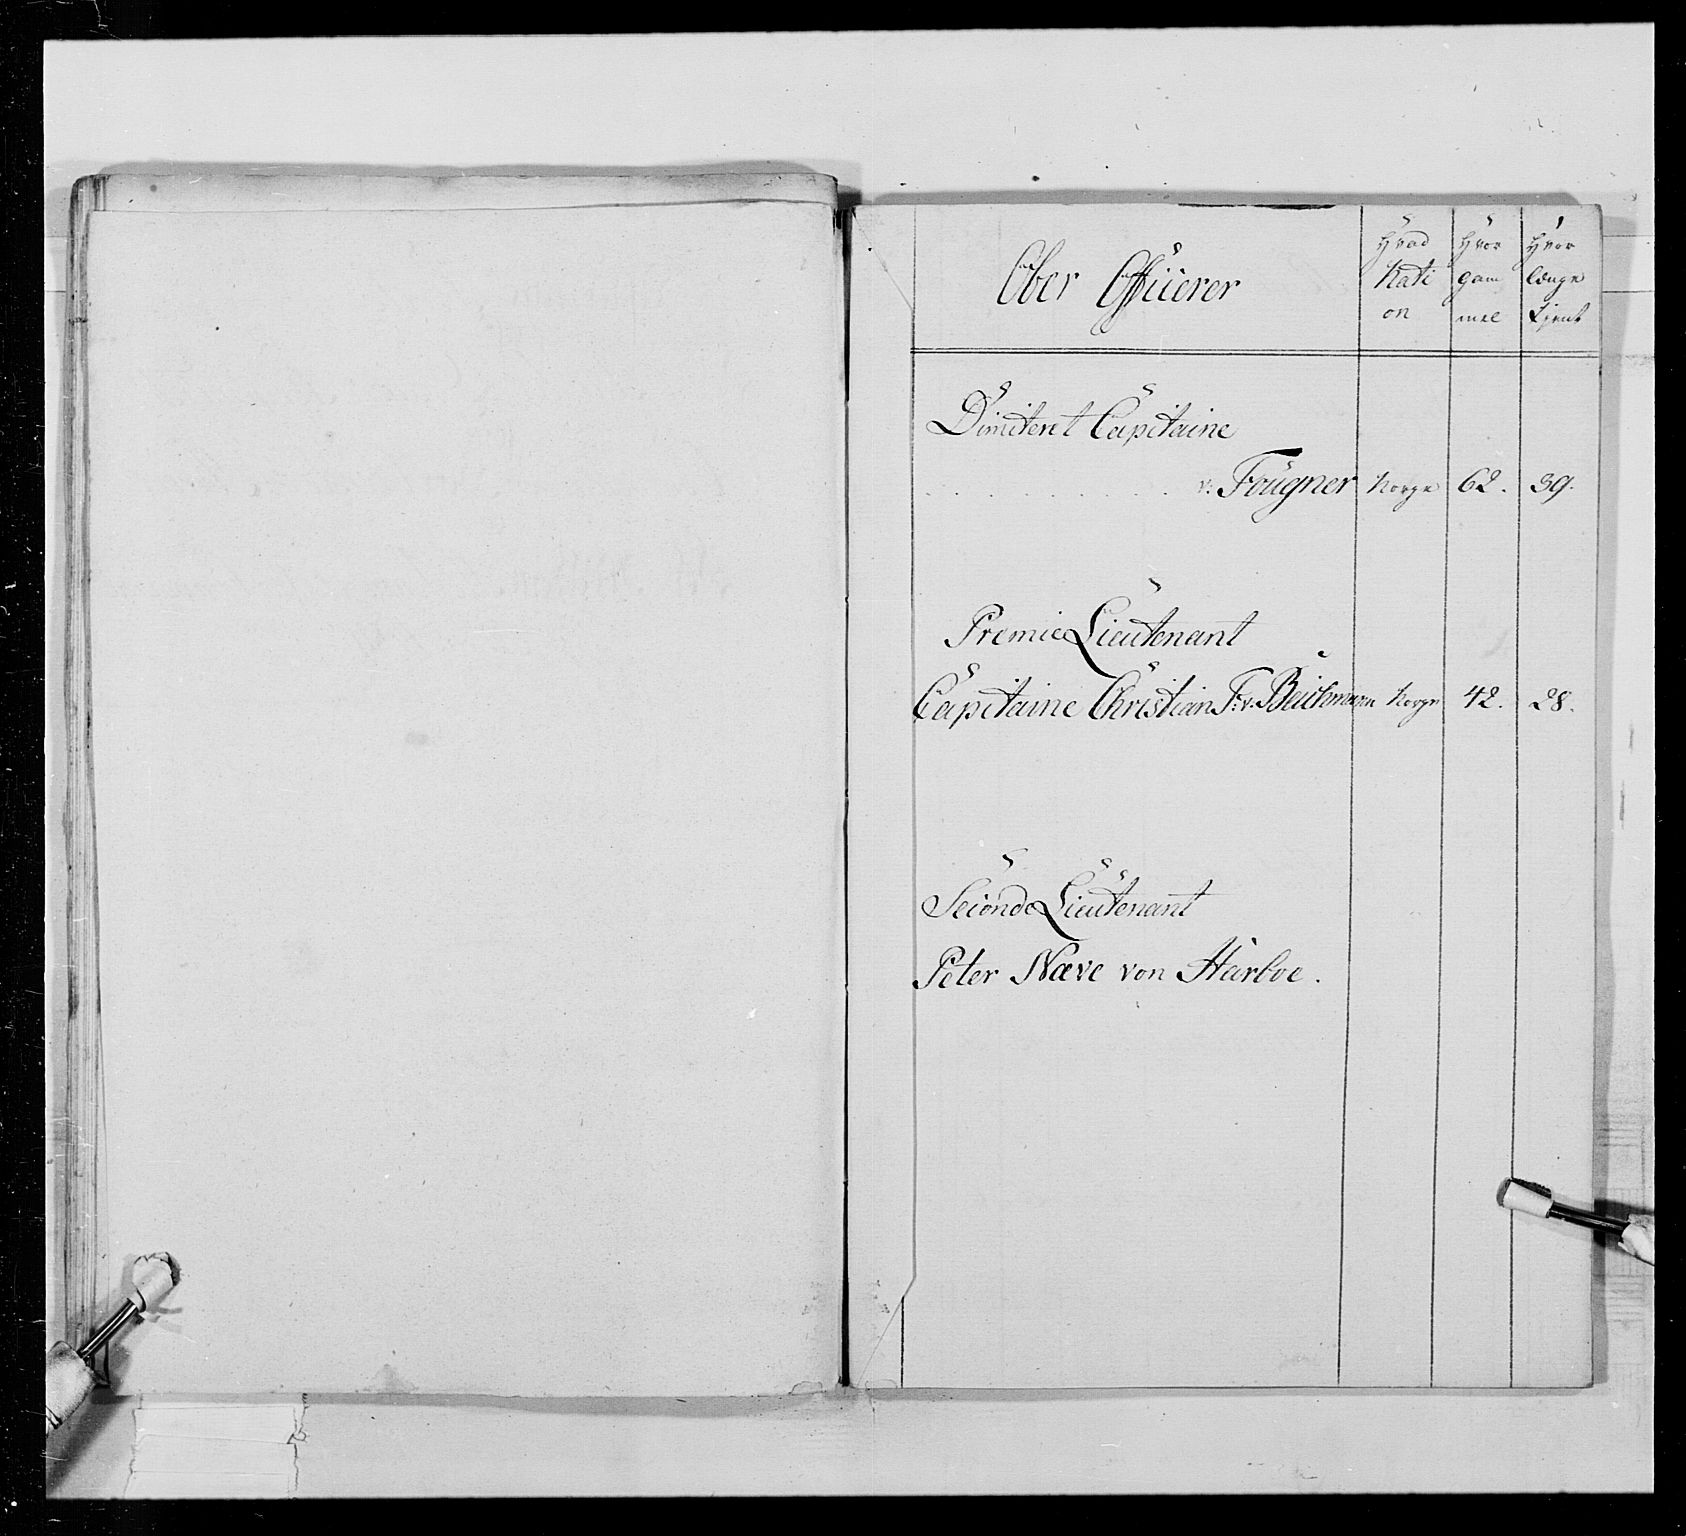 Ober Officierer
Hvad Nati on
Hvor gam mel
Hvor længe tjent
Dimiteret Capitaine
v: Fougner Norge 62. 39.
Premie Lieutenant
Capitaine Christian F: v. Beichmann Norge 42. 28.
Seconde Lieutenant
Peter Næve von Harboe.